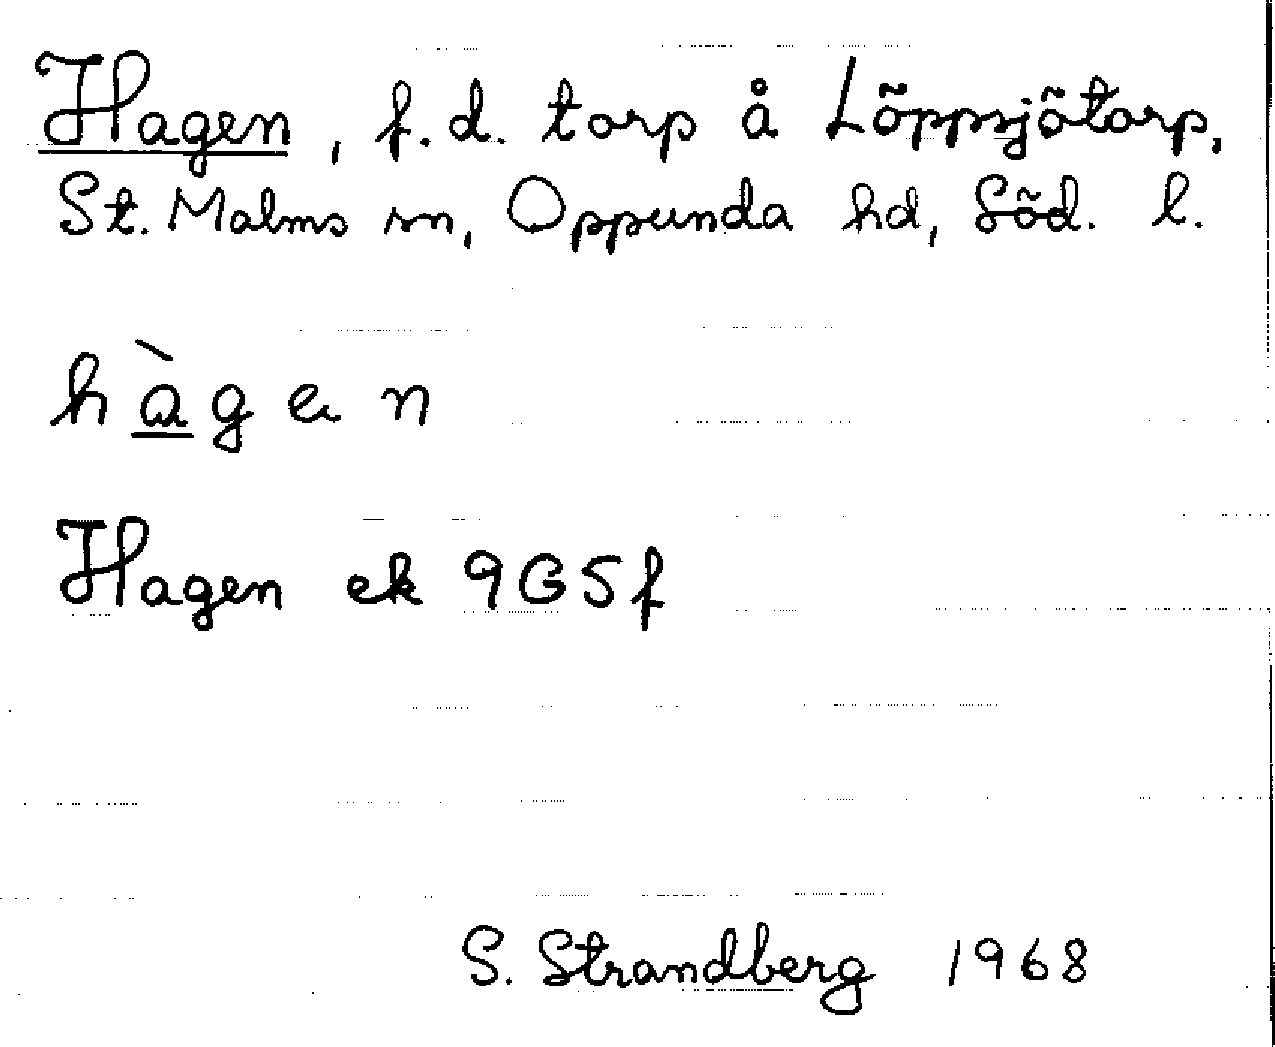 Hagen, f.d. torp å Löppsjötorp,
St. Malms sn, Oppunda hd, Söd. l.
hàgen
Hagen ek 9G5f
S. Strandberg 1968